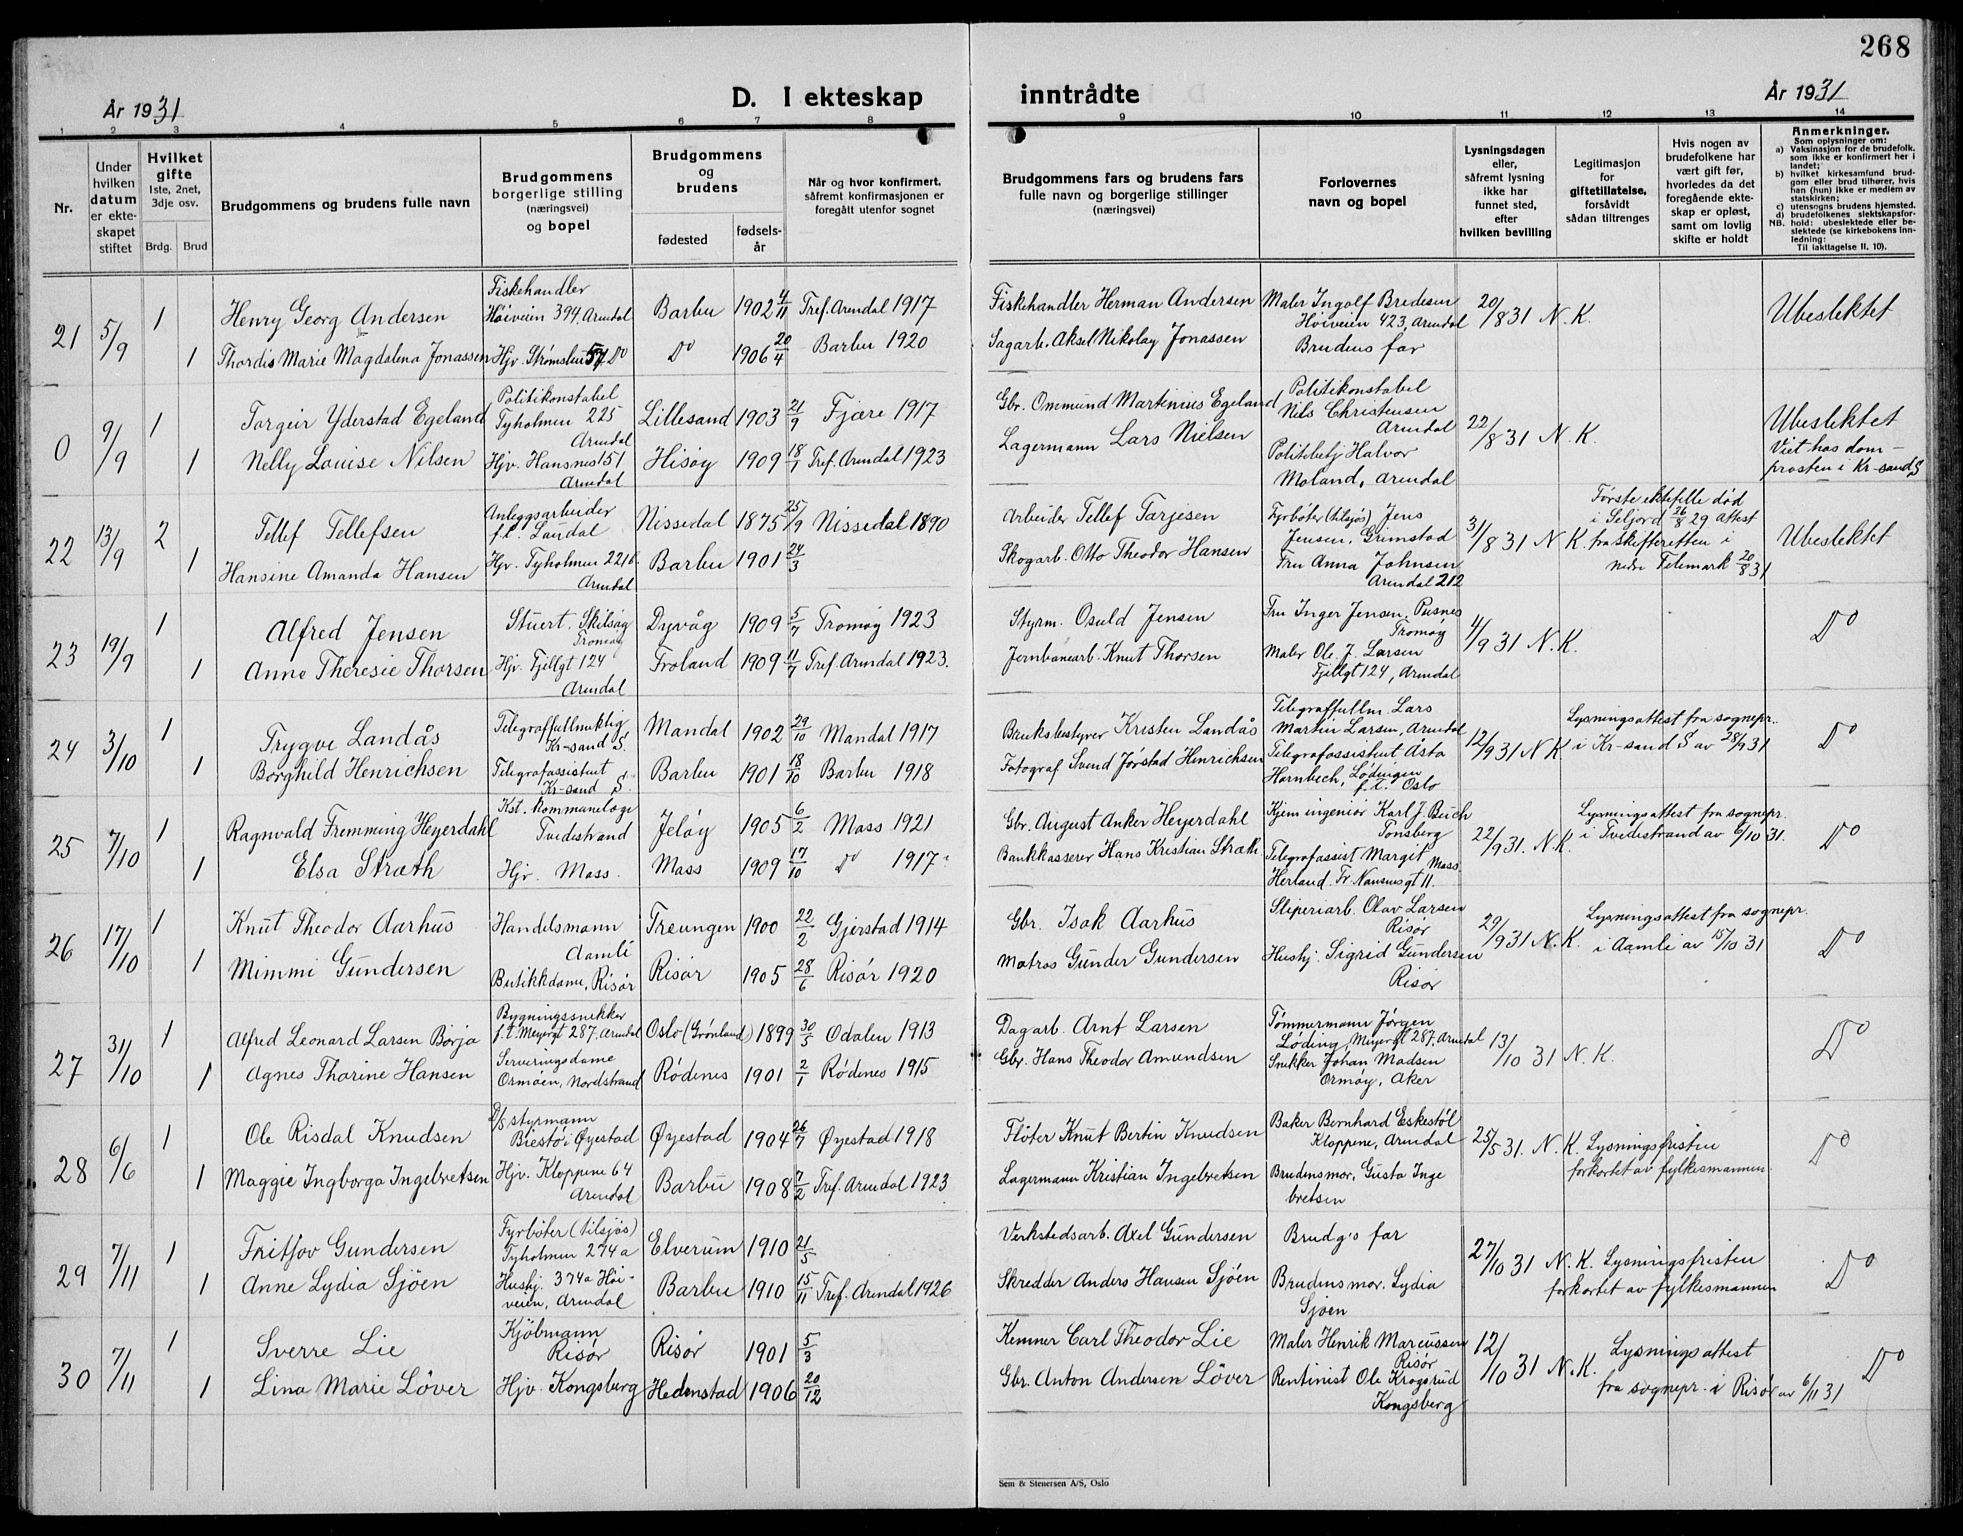 268
År 1931
D. I ekteskap
inntrådte
År 1931
1 2 3 4 5 6 7 8 9 10 11 12 13 14
Nr.
Under
hvilken
datum
er ekte-
skapet
stiftet
Hvilket
gifte
1ste, 2net,
3dje osv.
Brdg. Brud
Brudgommens og brudens fulle navn
Brudgommens
borgerlige stilling
(næringsvei)
og bopel
Brudgommens
og
brudens
fødested
fødsels-
år
Når og hvor konfirmert,
såfremt konfirmasjonen er
foregått utenfor sognet
Brudgommens fars og brudens fars
fulle navn og borgerlige stillinger
(næringsvei)
Forlovernes
navn og bopel
Lysningsdagen
eller,
såfremt lysning
ikke har
funnet sted,
efter
hvilken bevilling
Legitimasjon
for
giftetillatelse,
forsåvidt
sådan tiltrenges
Hvis nogen av
brudefolkene har
vært gift før,
hvorledes da det
foregående ekte-
skap er opløst,
samt om lovlig
skifte er holdt
Anmerkninger.
Som oplysninger om:
a) Vaksinasjon for de brudefolk,
som ikke er konfirmert her i
landet;
b) hvilket kirkesamfund brud-
gom eller brud tilhører, hvis
han (hun) ikke er medlem av
statskirken;
c) utensogns brudens hjemsted.
d) brudefolkenes slektskapsfor-
NB. hold: ubeslektede eller be-
slektede (se kirkebokens inn-
ledning:
Til iakttagelse II. 10).
21 5/9 1 Henry Georg Andersen Fiskehandler Høiveien 394, Arendal Barbu 1902 4/11 Tref. Arendal 1917 Fiskehandler Herman Andersen Maler Ingolf Bredesen Høiveien 423, Arendal 20/8 31 N. K. Ubeslektet
1 Thordis Marie Magdalena Jonassen Hjv. Do Do 1906 20/4 Barbu 1920 Sagarb. Aksel Nikolay Jonassen Brudens far
0 9/9 1 Torgeir Yderstad Egeland Politikonstabel Tyholmen 225 Arendal Lillesand 1903 21/9 Fjære 1917 Gbr. Ommund Martinius Egeland Politikonstabel Nils Christensen Arendal 22/8 31 N. K. Ubeslektet
1 Nelly Louise Nilsen Hjv. Hansnes 151 Arendal Hisøy 1909 18/7 Tref. Arendal 1923 Lagermann Lars Nielsen Politibetj Halvor Moland, Arendal Viet hos dom-
prosten i Kr-sand S
22 13/9 2 Tellef Tellefsen Anleggsarbeider f.t. Landal Nissedal 1875 25/9 Nissedal 1890 Arbeider Tellef Tarjesen Fyrbøter (tilsjøs) Jens Jensen, Grimstad 31/8 31 N. K. Første ektefelle død i Seljord 26/8 29 Attest fra skifteretten i nedre Telemark 20/8 31 Ubeslektet
1 Hansine Amanda Hansen Hjv. Tyholmen 221 b. Arendal Barbu 1901 24/3 Skogarb. Otto Theodor Hansen Fru Anna Johnsen Arendal 212
23 19/9 1 Alfred Jensen Stuert. Skilsøy Tromøy Dypvåg 1909 5/7 Tromøy 1923 Styrm. Osuld Jensen Fru Inger Jensen, Pusnes Tromøy 4/9 31 N. K. Do
1 Anne Theresie Thorsen Hjv. Fjellgt 124 Arendal Froland 1909 11/7 Tref. Arendal 1923. Jernbanearb. Knut Thorsen Maler Ole J. Larsen Fjellgt 124, Arendal
24 3/10 1 Trygve Landås Telegraffullmektig Kr-sand S. Mandal 1902 29/10 Mandal 1917 Bruksbestyrer Kristen Landås Telegraffullm. Lars Martin Larsen, Arendal 12/9 31 N. K. Lysningsattest fra sognepr. i Kr-sand S av 28/9 31 Do
1 Borghild Henrichsen Telegrafassistent Kr-sand S. Barbu 1901 18/10 Barbu 1918 Fotograf Svend Jørstad Henrichsen Telegrafassistent Åsta Hornbech, Lødingen f.t. Oslo
25 7/10 1 Ragnvald Fremming Heyerdahl Kst. kommunelæge Tvedestrand Jeløy 1905 6/2 Moss 1921 Gbr. August Anker Heyerdahl Kjem ingeniør Karl J. Buch Tønsberg 22/9 31. N. K. Lysningsattest fra sognepr. i Tvedestrand av 6/10 31. Do
1 Elsa Stræth Hjv. Moss. Moss 1909 17/10 Do 1917. Bankkasserer Hans Kristian Stræth Telegrafassist Margit Herland. Fr Nansensgt 11. Moss
26 17/10 1 Knut Theodor Aarhus Handelsmann Aamli Treungen 1900 22/2 Gjerstad 1914 Gbr. Isak Aarhus Sliperiarb. Olav Larsen Risør 29/9 31 N. K. Lysningsattest fra sognepr. i Aamli av 15/10 31 Do
1 Mimmi Gundersen Butikkdame, Risør Risør 1905 28/6 Risør 1920 Matros Gunder Gundersen Hushj. Sigrid Gundersen Risør
27 31/10 1 Alfred Leonard Larsen Borja Bygningssnekker f.t. Meyergt 287, Arendal Oslo (Grønland) 1899 30/5 Odalen 1913 Dagarb. Arnt Larsen Tømmermann Jørgen Løding, Meyergt 287, Arendal 13/10 31 N. K. Do
1 Agnes Thorine Hansen Serveringsdame Ormøen, Nordstrand Rødenes 1901 2/1 Rødenes 1915 Gbr. Hans Theodor Amundsen Snikker Johan Madsen Ormøy, Aker
28 6/6 1 Ole Risdal Knudsen D/S styrmann Biestø i Øyestad Øyestad 1904 26/7 Øyestad 1918 Fløter Knut Bertin Knudsen Baker Bernhard Eskestøl Kloppene, Arendal 25/5 31. N. K. Lysningsfristen forkortet av fylkesmannen. Do
1 Maggie Ingborga Ingebretsen Hjv. Kloppene 64 Arendal Barbu 1908 7/2 Tref. Arendal 1923 Lagermann Kristian Ingebretsen Brudens mor, Gusta Ingebretsen
29 7/11 1 Fritjov Gundersen Fyrbøter (tilsjøs) Tyholmen 274 a Elverum 1910 21/5 Verkstedsarb. Axel Gundersen Brudg's far 27/10 31 N. K. Lysningsfristen forkortet av fylkesmannen Do
1 Anne Lydia Sjøen Hushj. 374 a Høiveien, Arendal Barbu 1910 15/11 Tref. Arendal 1926 Skredder Anders Hansen Sjøen Brudens mor. Lydia Sjøen
30 7/11 1 Sverre Lie Kjøbmann Risør Risør 1901 5/3 Kemner Carl Theodor Lie Maler Henrik Marcussen Risør 12/10 31 N. K. Lysningsattest fra sognepr. i Risør av 6/11 31 Do
1 Lina Marie Løver Hjv. Kongsberg Hedenstad 1906 20/12 Gbr. Anton Andersen Løver Rentinist Ole Krogsrud Kongsberg
Sem & Stenersen A/S, Oslo